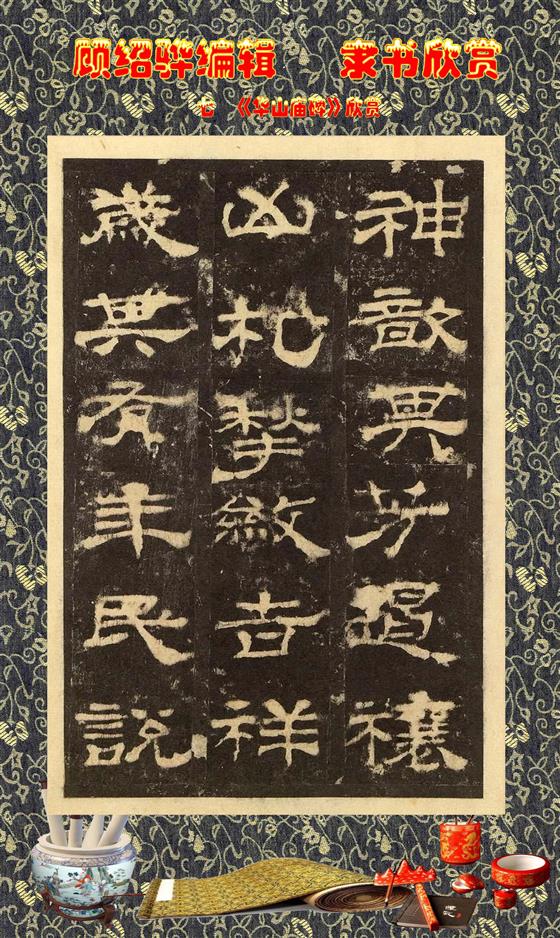 顾绍骅编辑 隶书欣赏
心 《华山庙碑》欣赏
神歆其芳遏禳
凶札揫斂吉祥
歲其有年民說